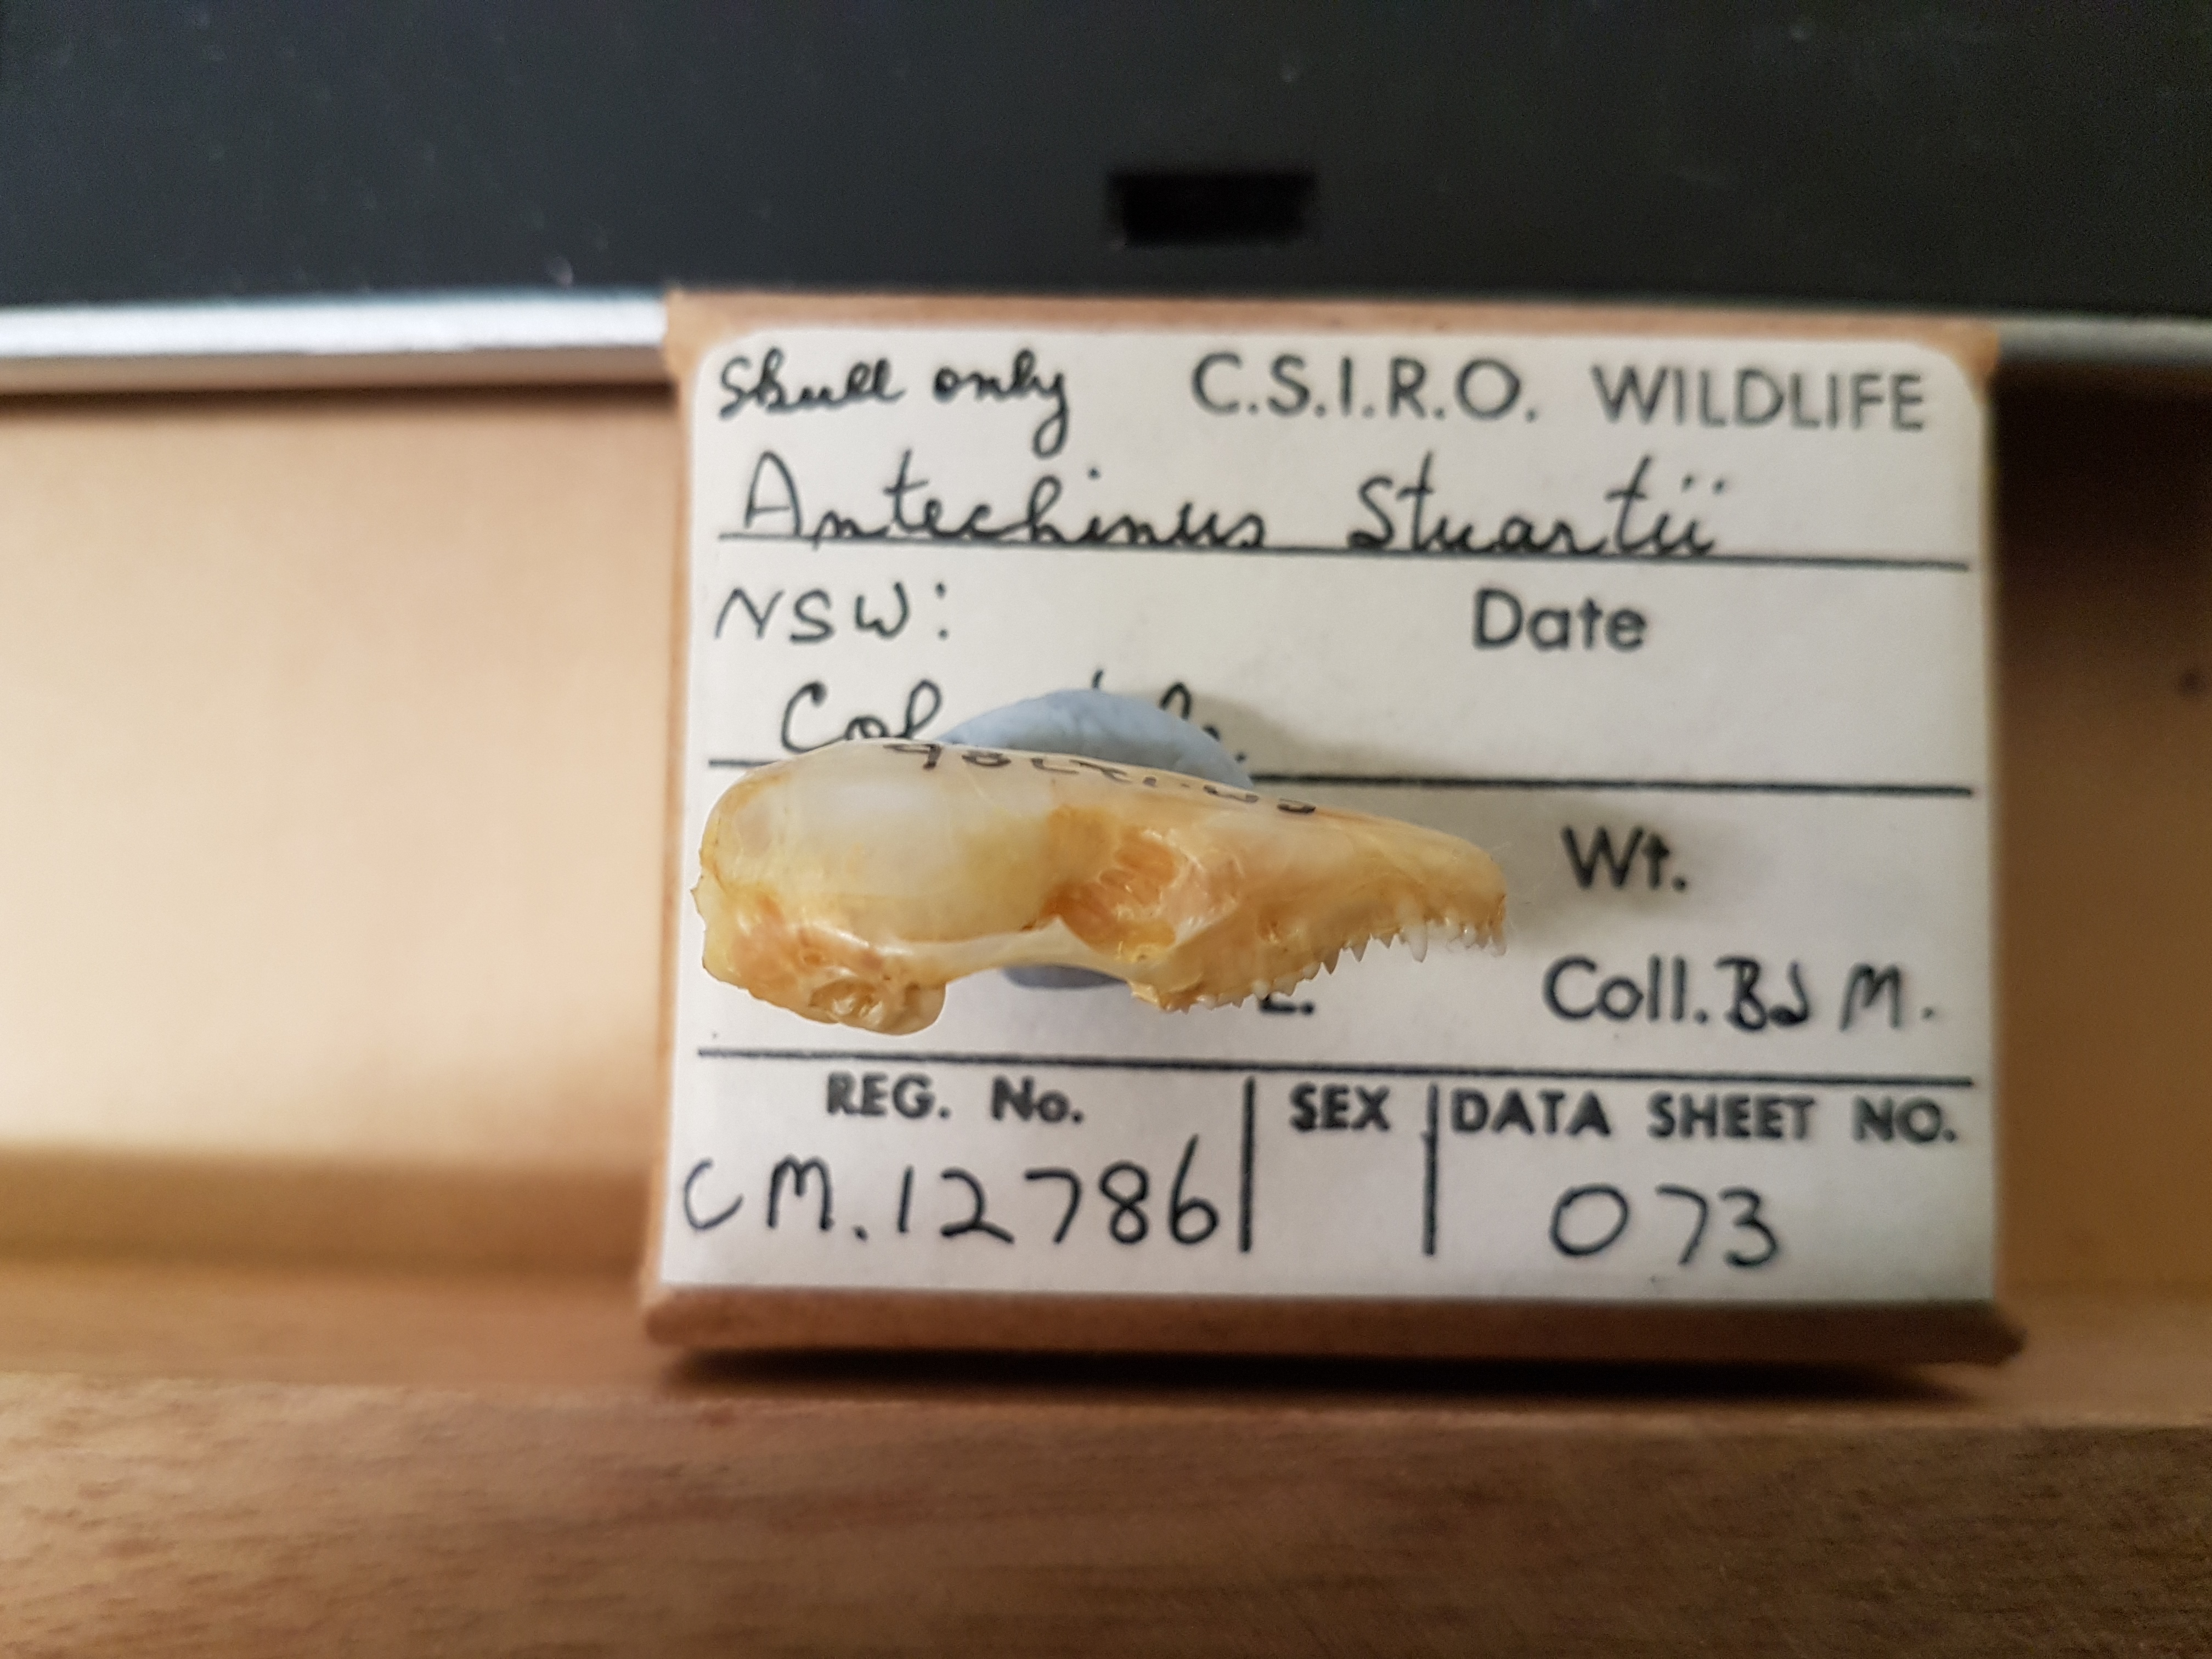 Skull only C.S.I.R.O. WILDLIFE
Antechinus Stuartii
NSW: Date
Wt.
L. Coll. BJM.
REG. No. SEX DATA SHEET NO.
CM.12786 073